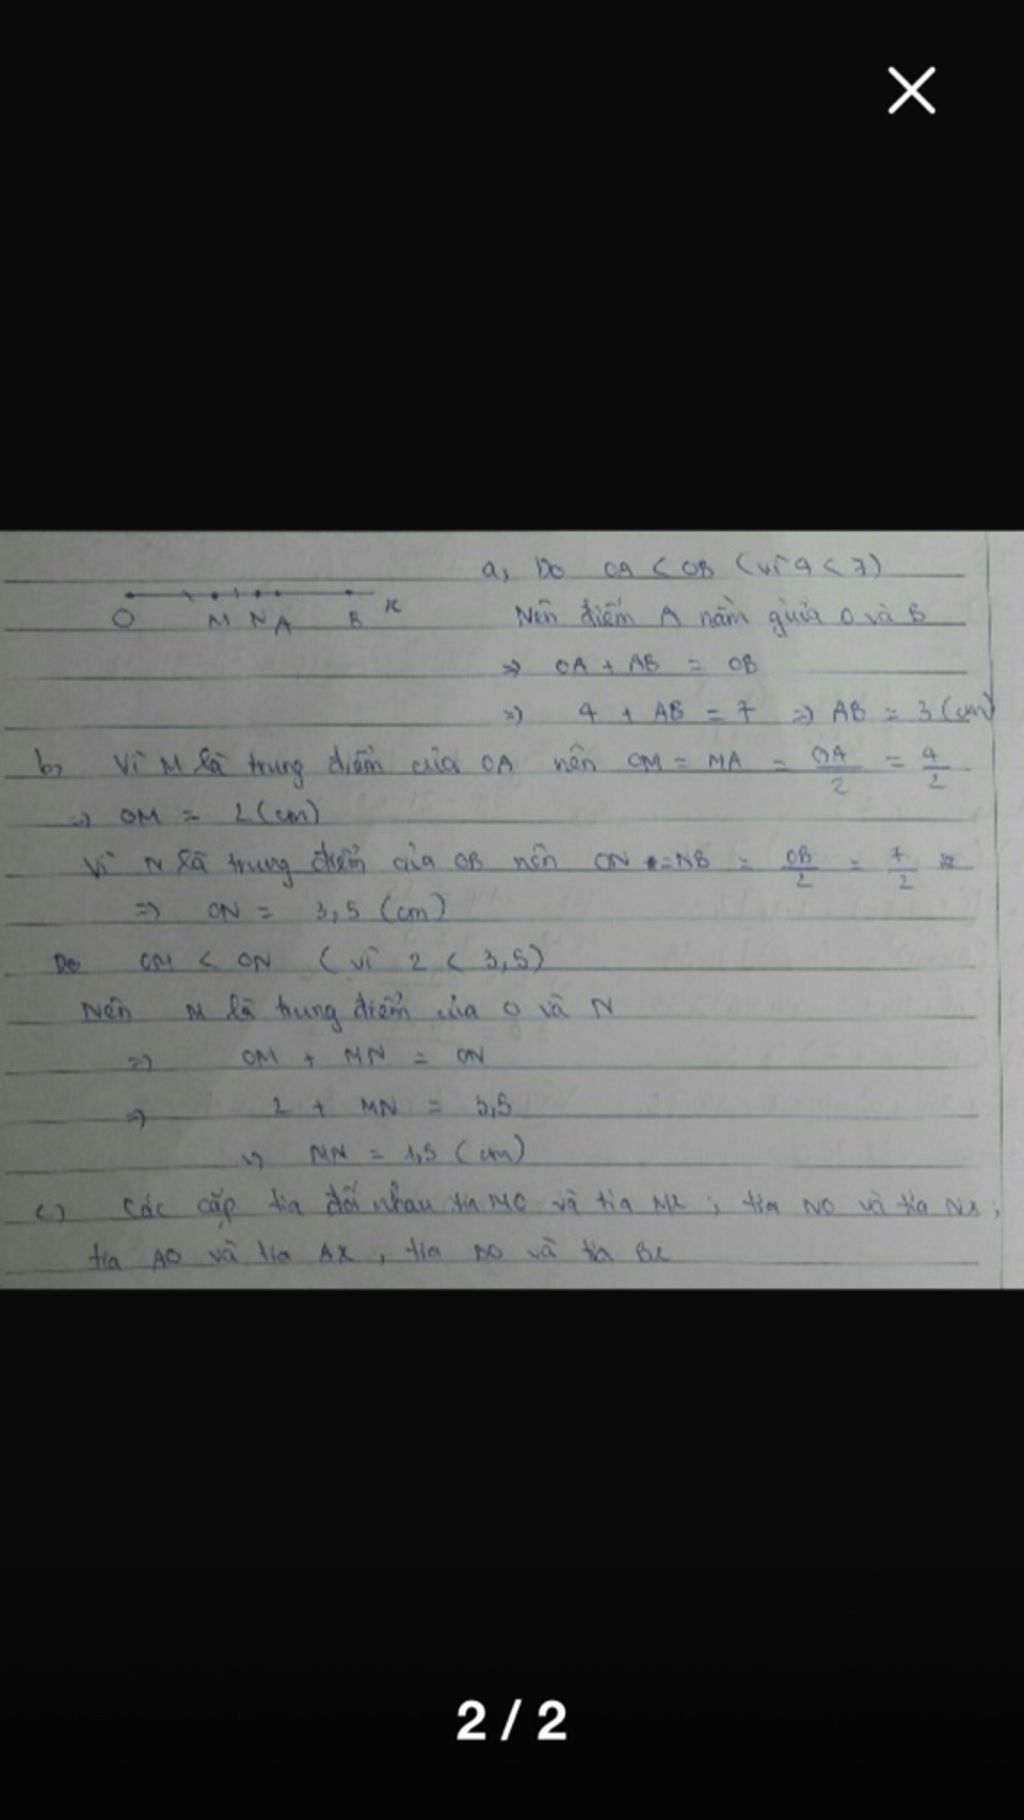 a, Do OA < OB (vì 4 < 7)
O M N A B x
Nên điểm A nằm giữa O và B
=> OA + AB = OB
=> 4 + AB = 7 => AB = 3 (cm)
b, Vì M là trung điểm của OA nên OM = MA = OA/2 = 4/2
=> OM = 2 (cm)
Vì N là trung điểm của OB nên ON = NB = OB/2 = 7/2
=> ON = 3,5 (cm)
Do OM < ON (vì 2 < 3,5)
Nên M là trung điểm của O và N
=> OM + MN = ON
=> 2 + MN = 3,5
=> MN = 1,5 (cm)
c) Các cặp tia đối nhau tia MO và tia Mx ; tia NO và tia Nx ;
tia AO và tia Ax , tia BO và tia Bx
2 / 2